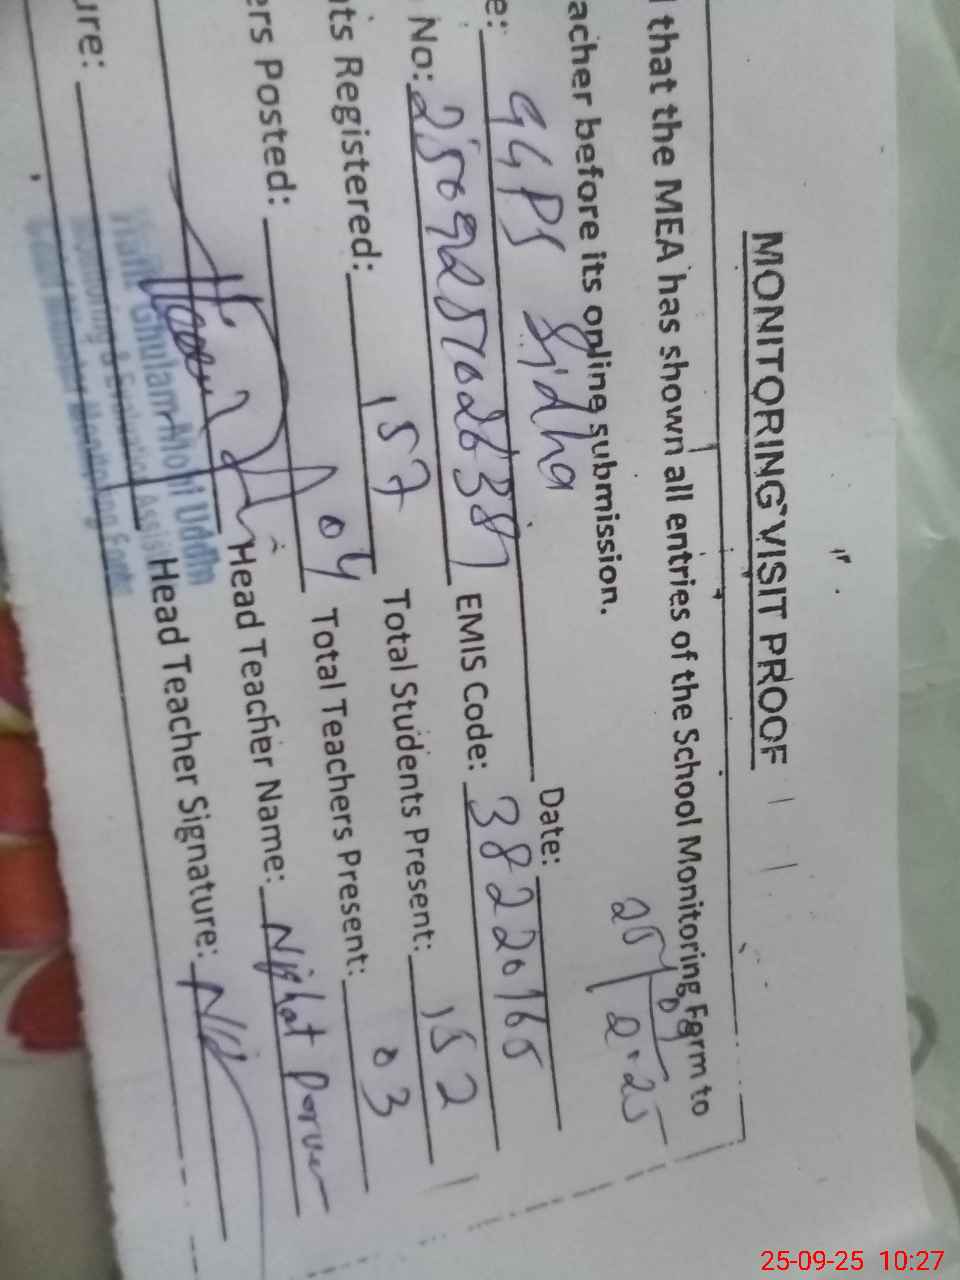 MONITORING VISIT PROOF
that the MEA has shown all entries of the School Monitoring Form to
acher before its online submission.
Date: 25/09/2025
e: GGPS Sidha
No: 25092570263387 EMIS Code: 38220165
ts Registered: 157 Total Students Present: 152
ers Posted: 04 Total Teachers Present: 03
Head Teacher Name: Nighat Parveen
ure: Head Teacher Signature:
Hafiz Ghulam Mohi Uddin
Monitoring & Evaluation Assis
Chief Minister Monitoring Force
25-09-25 10:27